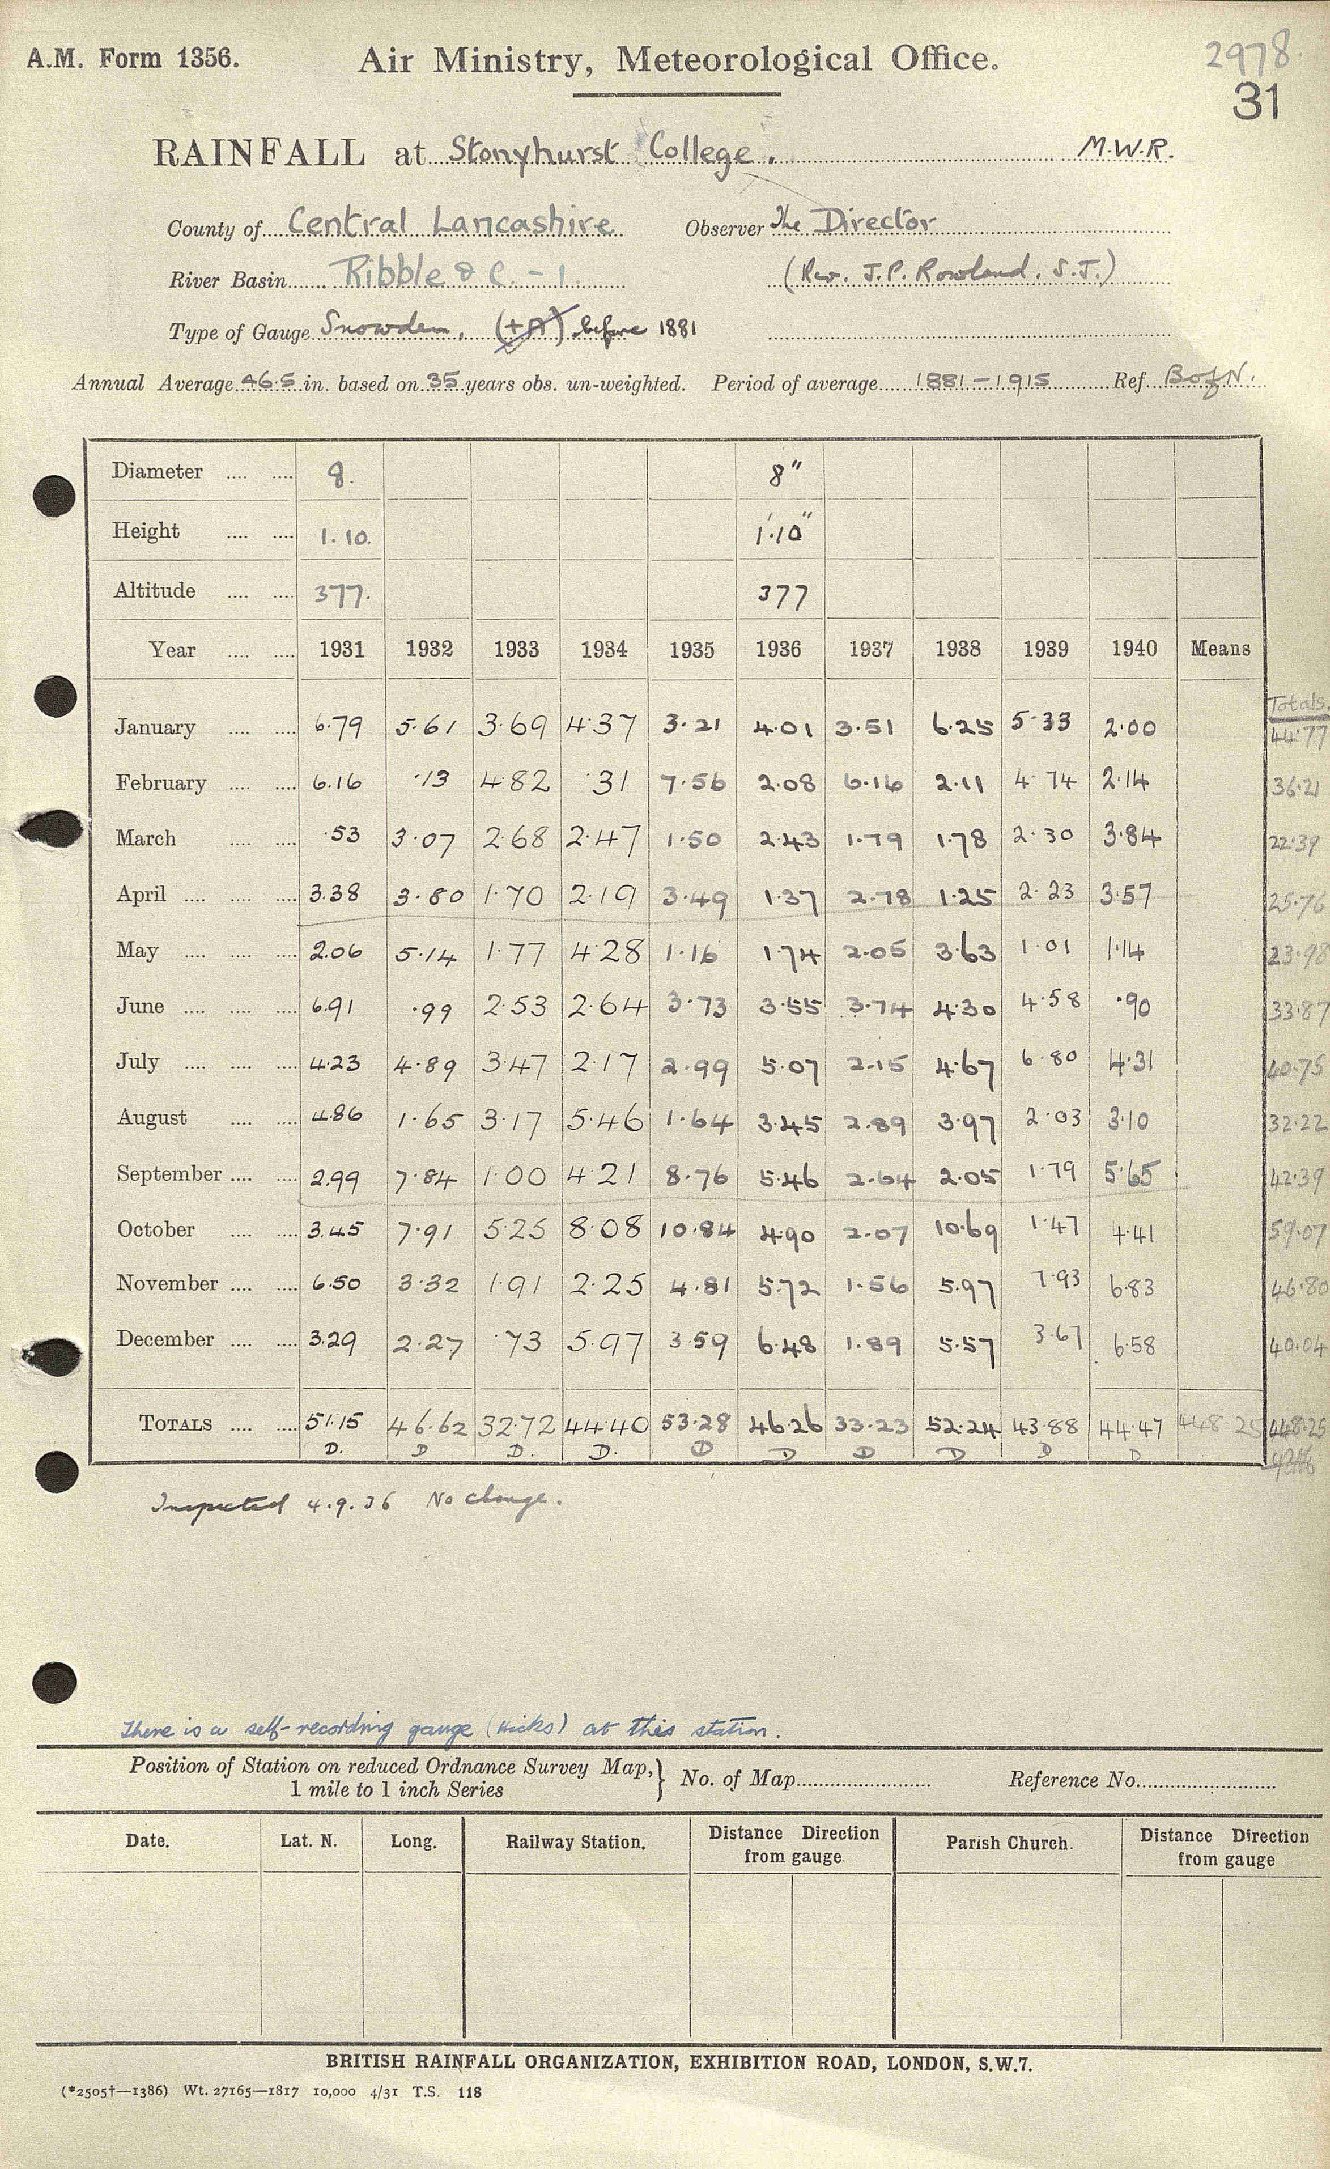 A.M. Form 1356. Air Ministry, Meteorological Office. 2978.
31
RAINFALL at Stonyhurst College. M.W.R.
County of Central Lancashire Observer The Director
River Basin Ribble & C. - 1. (Rev. J.P. Rowland. S.J.)
Type of Gauge Snowdon, before 1881
Annual Average 46.5 in. based on 35 years obs. un-weighted. Period of average 1881-1915 Ref. B of N.
Diameter 8. 8"
Height 1.10. 1'.10"
Altitude 377. 377
Year 1931 1932 1933 1934 1935 1936 1937 1938 1939 1940 Means Totals.
January 6.79 5.61 3.69 4.37 3.21 4.01 3.51 6.25 5.33 2.00 44.77
February 6.16 .13 4.82 .31 7.56 2.08 6.16 2.11 4.74 2.14 36.21
March .53 3.07 2.68 2.47 1.50 2.43 1.79 1.78 2.30 3.84 22.39
April 3.38 3.80 1.70 2.19 3.49 1.37 2.78 1.25 2.23 3.57 25.76
May 2.06 5.14 1.77 4.28 1.16 1.74 2.05 3.63 1.01 1.14 23.98
June 6.91 .99 2.53 2.64 3.73 3.55 3.74 4.30 4.58 .90 33.87
July 4.23 4.89 3.47 2.17 2.99 5.07 2.15 4.67 6.80 4.31 40.75
August 4.86 1.65 3.17 5.46 1.64 3.45 2.89 3.97 2.03 3.10 32.22
September 2.99 7.84 1.00 4.21 8.76 5.46 2.64 2.05 1.79 5.65 42.39
October 3.45 7.91 5.25 8.08 10.84 4.90 2.07 10.69 1.47 4.41 59.07
November 6.50 3.32 1.91 2.25 4.81 5.72 1.56 5.97 7.93 6.83 46.80
December 3.29 2.27 .73 5.97 3.59 6.48 1.89 5.57 3.67 6.58 40.04
TOTALS 51.15 46.62 32.72 44.40 53.28 46.26 33.23 52.24 43.88 44.47 448.25 448.25
D. D D. D. D D D D D D
Inspected 4.9.36 No change.
There is a self-recording gauge (Hicks) at this station.
Position of Station on reduced Ordnance Survey Map, } No. of Map Reference No.
1 mile to 1 inch Series
Date. Lat. N. Long. Railway Station. Distance Direction from gauge Parish Church. Distance Direction from gauge
BRITISH RAINFALL ORGANIZATION, EXHIBITION ROAD, LONDON, S.W.7.
(*2505†—1386) Wt. 27165—1817 10,000 4/31 T.S. 118